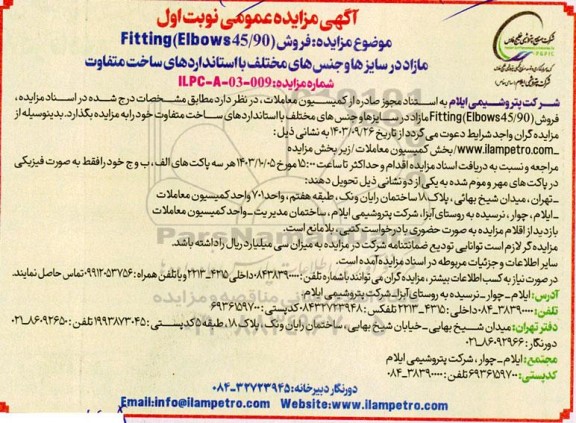 آگهی مزایده عمومی نوبت اول
موضوع مزایده: فروش Fitting (Elbows 45/90)
مازاد در سایز ها و جنس های مختلف با استانداردهای ساخت متفاوت
شماره مزایده: ILPC-A-03-009
شرکت پتروشیمی ایلام به استناد مجوز صادره از کمیسیون معاملات، در نظر دارد مطابق مشخصات درج شده در اسناد مزایده،
فروش Fitting (Elbows 45/90) مازاد در سایزها و جنس های مختلف با استانداردهای ساخت متفاوت خود را به مزایده بگذارد. بدینوسیله از
مزایده گران واجد شرایط دعوت می گردد از تاریخ ۱۴۰۳/۰۹/۲۶ به نشانی ذیل:
www.ilampetro.com/بخش کمیسیون معاملات/زیر بخش مزایده
مراجعه و نسبت به دریافت اسناد مزایده اقدام و حداکثر تا ساعت ۱۵:۰۰ مورخ ۱۴۰۳/۱۰/۰۵ هر سه پاکت های الف، ب و ج خود را فقط به صورت فیزیکی
در پاکت های مهر و موم شده به یکی از دو نشانی ذیل تحویل دهند:
-تهران، میدان شیخ بهائی، پلاک ۱۸ ساختمان رایان ونک، طبقه هفتم، واحد ۷۰۱ واحد کمیسیون معاملات
-ایلام، چوار، نرسیده به روستای آبزا، شرکت پتروشیمی ایلام، ساختمان مدیریت-واحد کمیسیون معاملات
بازدید از اقلام مزایده به صورت حضوری با درخواست کتبی، بلامانع است.
مزایده گر لازم است توانایی تودیع ضمانتنامه شرکت در مزایده به میزان سی میلیارد ریال را داشته باشد.
سایر اطلاعات و جزئیات مربوطه در اسناد مزایده آمده است.
در صورت نیاز به کسب اطلاعات بیشتر، مزایده گران می توانند با شماره تلفن: ۰۸۴۳۸۳۹۰۰۰۰ داخلی ۴۲۱۵-۲۲۱۳ و یا تلفن همراه: ۰۹۹۱۲۰۵۳۷۵۶ تماس حاصل نمایند.
آدرس: ایلام-چوار-نرسیده به روستای آبزا-شرکت پتروشیمی ایلام
تلفن: ۰۸۴-۳۸۳۹۰۰۰۰ داخلی: ۴۳۱۵-۲۲۱۳ تلفکس: ۰۸۴۳۲۷۲۳۹۴۸ کدپستی: ۶۹۳۶۱۵۹۷۰۰
دفتر تهران: میدان شیخ بهایی-خیابان شیخ بهایی، ساختمان رایان ونک، پلاک ۱۸، طبقه ۵ کدپستی: ۱۹۹۳۸۷۳۰۴۵ تلفن: ۸۶۰۹۲۶۵۰-۰۲۱
دورنگار: ۸۶۰۹۲۹۶۶-۰۲۱
مجتمع: ایلام-چوار، شرکت پتروشیمی ایلام
کدپستی: ۶۹۳۶۱۵۹۷۰۰ تلفن: ۳۸۳۹۰۰۰۰-۰۸۴
دورنگار دبیرخانه: ۳۲۷۲۳۹۴۵-۰۸۴
Email:info@ilampetro.com Website:www.ilampetro.com